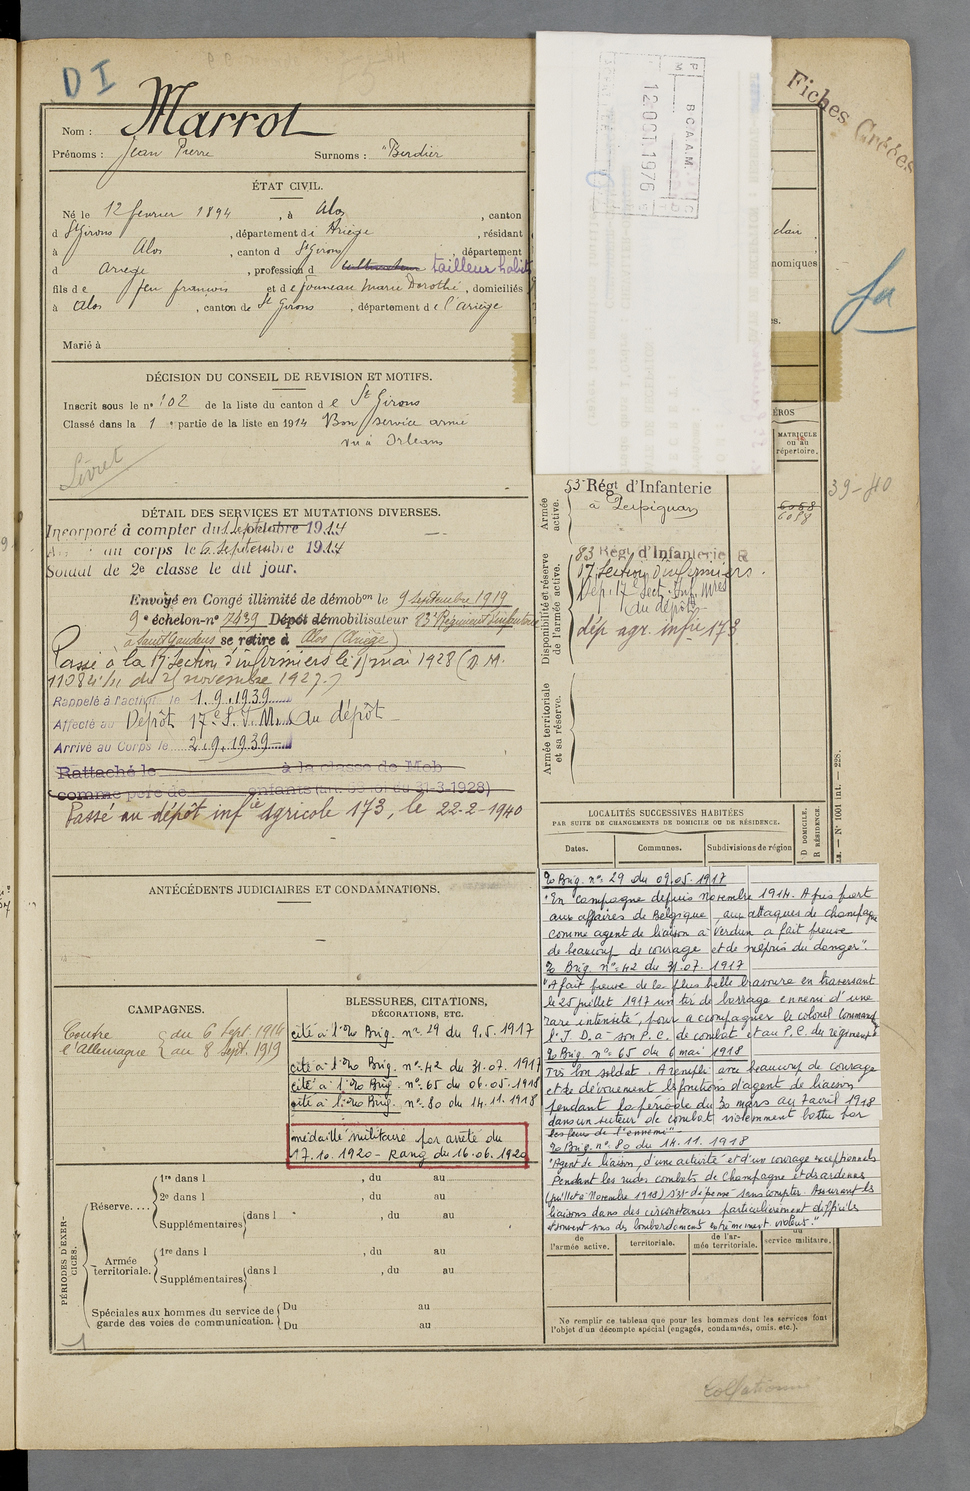 D I
Nom : Marrot
Prénoms : Jean Pierre Surnoms : "Berdier
ÉTAT CIVIL.
Né le 12 fevrier 1894, à Alos, canton
d St Girons, département d i Ariège, résidant
à Alos, canton d St Girons département
d ariege, profession d cultivateur tailleur habits
fils de feu francois et de jouneau Marie Dorothé, domiciliés
à Alos, canton de St Girons, département de l'ariège
Marié à
DÉCISION DU CONSEIL DE REVISION ET MOTIFS.
Inscrit sous le n° 102 de la liste du canton d e St Girons
Classé dans la 1e partie de la liste en 1914 Bon service armé
vu à Orleans
Livret
DÉTAIL DES SERVICES ET MUTATIONS DIVERSES.
Incorporé à compter du 1 septembre 1914
au corps le 6 septembre 1914
Soldat de 2e classe le dit jour.
Envoyé en Congé illimité de démobon le 9 septembre 1919
9e échelon-n° 7439 Dépôt démobilisateur 83 Régiment Infanterie
Saint Gaudens se retire à Alos (Ariège)
Passé à la 17 Section d'infirmiers le 1 mai 1928 (D.M.
11084 1/11 du 25 novembre 1927.)
Rappelé à l'activité le 1.9.1939
Affecté au Dépôt 17e S.I.M. du dépôt
Arrivé au Corps le 2.9.1939
Rattaché le à la classe de Mob
comme père de enfants (art. 58 loi du 31-3-1928)
Passé au dépôt infie agricole 173, le 22-2-1940
ANTÉCÉDENTS JUDICIAIRES ET CONDAMNATIONS.
CAMPAGNES.
Contre du 6 Sept. 1914
l'Allemagne au 8 Sept. 1919
BLESSURES, CITATIONS,
DÉCORATIONS, ETC.
cité à l'Brig. n° 29 du 9.5.1917
cité à l'Brig. n° 42 du 31.07.1917
cité à l'Brig. n° 65 du 06.05.1918
cité à l'Brig. n° 80 du 14.11.1918
médaillé militaire par arrêté du
17.10.1920 - Rang du 16.06.1920
PÉRIODES D'EXERCICES.
Réserve....
1re dans l , du au
2e dans l , du au
Supplémentaires dans l , du au
Armée territoriale.
1re dans l , du au
Supplémentaires dans l , du au
Spéciales aux hommes du service de
garde des voies de communication.
Du au
Du au
B.C.A.A.M.
12 OCT. 1976
Fiches Créées
nomiques
MATRICULE
ou au
répertoire.
39-40
Armée
active.
53 Régt d'Infanterie
à Perpignan
6058
6058
Disponibilité et réserve
de l'armée active.
83 Régt d'Infanterie R
17 Section d'infirmiers.
Dép. 17e Sect. Inf. Mres
(du dépôt)
dép agr. infie 173
Armée territoriale
et sa réserve.
LOCALITÉS SUCCESSIVES HABITÉES
PAR SUITE DE CHANGEMENTS DE DOMICILE OU DE RÉSIDENCE.
Dates. Communes. Subdivisions de région
D DOMICILE.
R RÉSIDENCE
N° 1001 int. — 228.
Brig. n° 29 du 09.05.1917
"En campagne depuis Novembre 1914. A pris part
aux affaires de Belgique, aux attaques de champagne
comme agent de liaison à Verdun a fait preuve
de beaucoup de courage et de mépris du danger".
Brig. n° 42 du 31.07.1917
"A fait preuve de la plus belle bravoure en traversant
le 25 juillet 1917 un tir de barrage ennemi d'une
rare intensité, pour accompagner le colonel commandt
l'I.D. à son P.C. de combat et au P.C. du régiment"
Brig. n° 65 du 6 mai 1918
Très bon soldat. A rempli avec beaucoup de courage
et de dévouement les fonctions d'agent de liaison
pendant la période du 30 mars au 7 avril 1918
dans un secteur de combat violemment battu par
les feux de l'ennemi"
Brig. n° 80 du 14.11.1918
"Agent de liaison, d'une activité et d'un courage exceptionnels
Pendant les rudes combats de Champagne et des ardennes
(juillet à Novembre 1918) s'est dépensé sans compter. Assurant les
liaisons dans des circonstances particulièrement difficiles
et souvent sous des bombardements extrêmement violents."
de l'armée active. territoriale. de l'armée territoriale. du service militaire.
Ne remplir ce tableau que pour les hommes dont les services font
l'objet d'un décompte spécial (engagés, condamnés, omis, etc.).